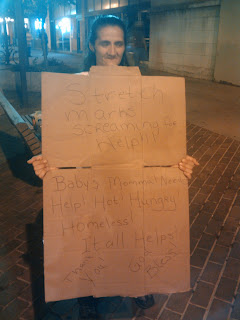 Stretch
marks
screaming for
help!!!
Babys Momma needs
Help! Hot! Hungry
Homeless!
It all Helps!
Thank God
you Bless